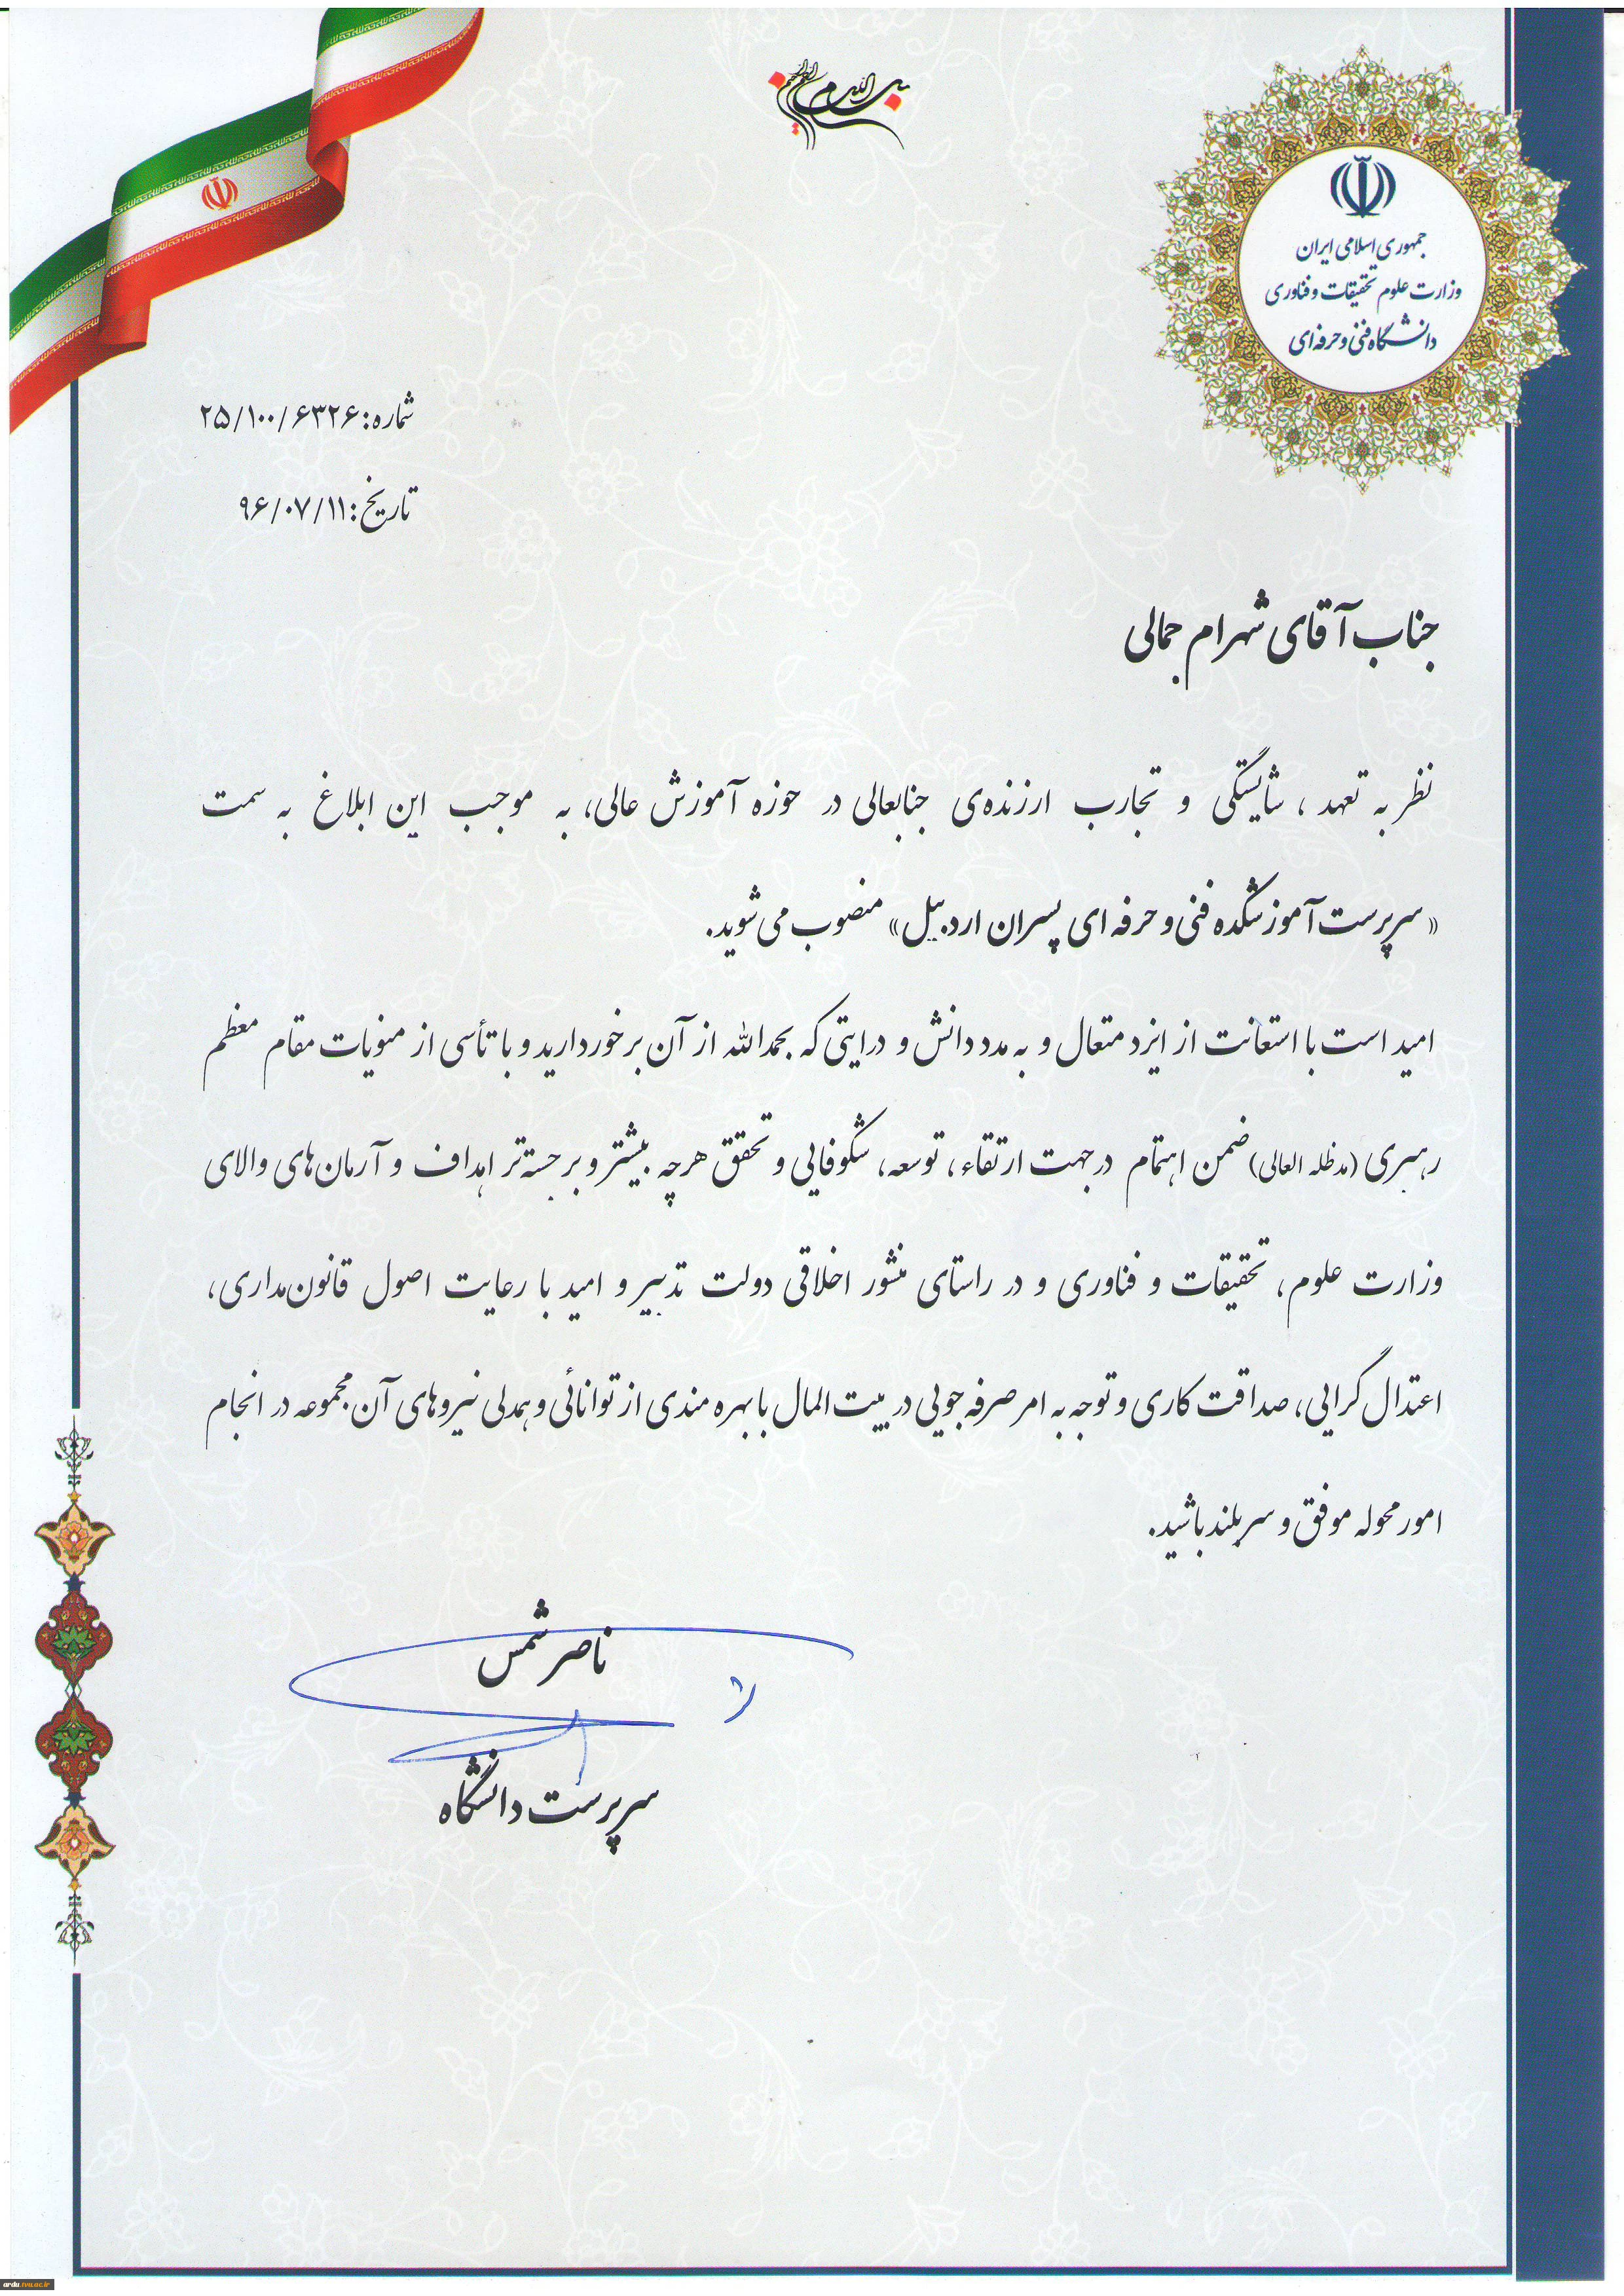 بسم الله الرحمن الرحیم
جمهوری اسلامی ایران
وزارت علوم تحقیقات و فناوری
دانشگاه فنی و حرفه‌ای
شماره: ۲۵/۱۰۰/۶۳۲۶
تاریخ: ۹۶/۰۷/۱۱
جناب آقای شهرام جمالی
نظر به تعهد ، شایستگی و تجارب ارزنده‌ی جنابعالی در حوزه آموزش عالی، به موجب این ابلاغ به سمت
« سرپرست آموزشکده فنی و حرفه ای پسران اردبیل» منصوب می شوید.
امید است با استعانت از ایزد متعال و به مدد دانش و درایتی که بحمدالله از آن برخوردارید و با تأسی از منویات مقام معظم
رهبری (مدظله العالی) ضمن اهتمام در جهت ارتقاء، توسعه، شکوفایی و تحقق هرچه بیشتر و برجسته‌تر اهداف و آرمان‌های والای
وزارت علوم، تحقیقات و فناوری و در راستای منشور اخلاقی دولت تدبیر و امید با رعایت اصول قانون‌مداری،
اعتدال گرایی، صداقت کاری و توجه به امر صرفه جویی در بیت المال با بهره مندی از توانائی و همدلی نیروهای آن مجموعه در انجام
امور محوله موفق و سربلند باشید.
ناصر شمس
سرپرست دانشگاه
ardu.tvu.ac.ir